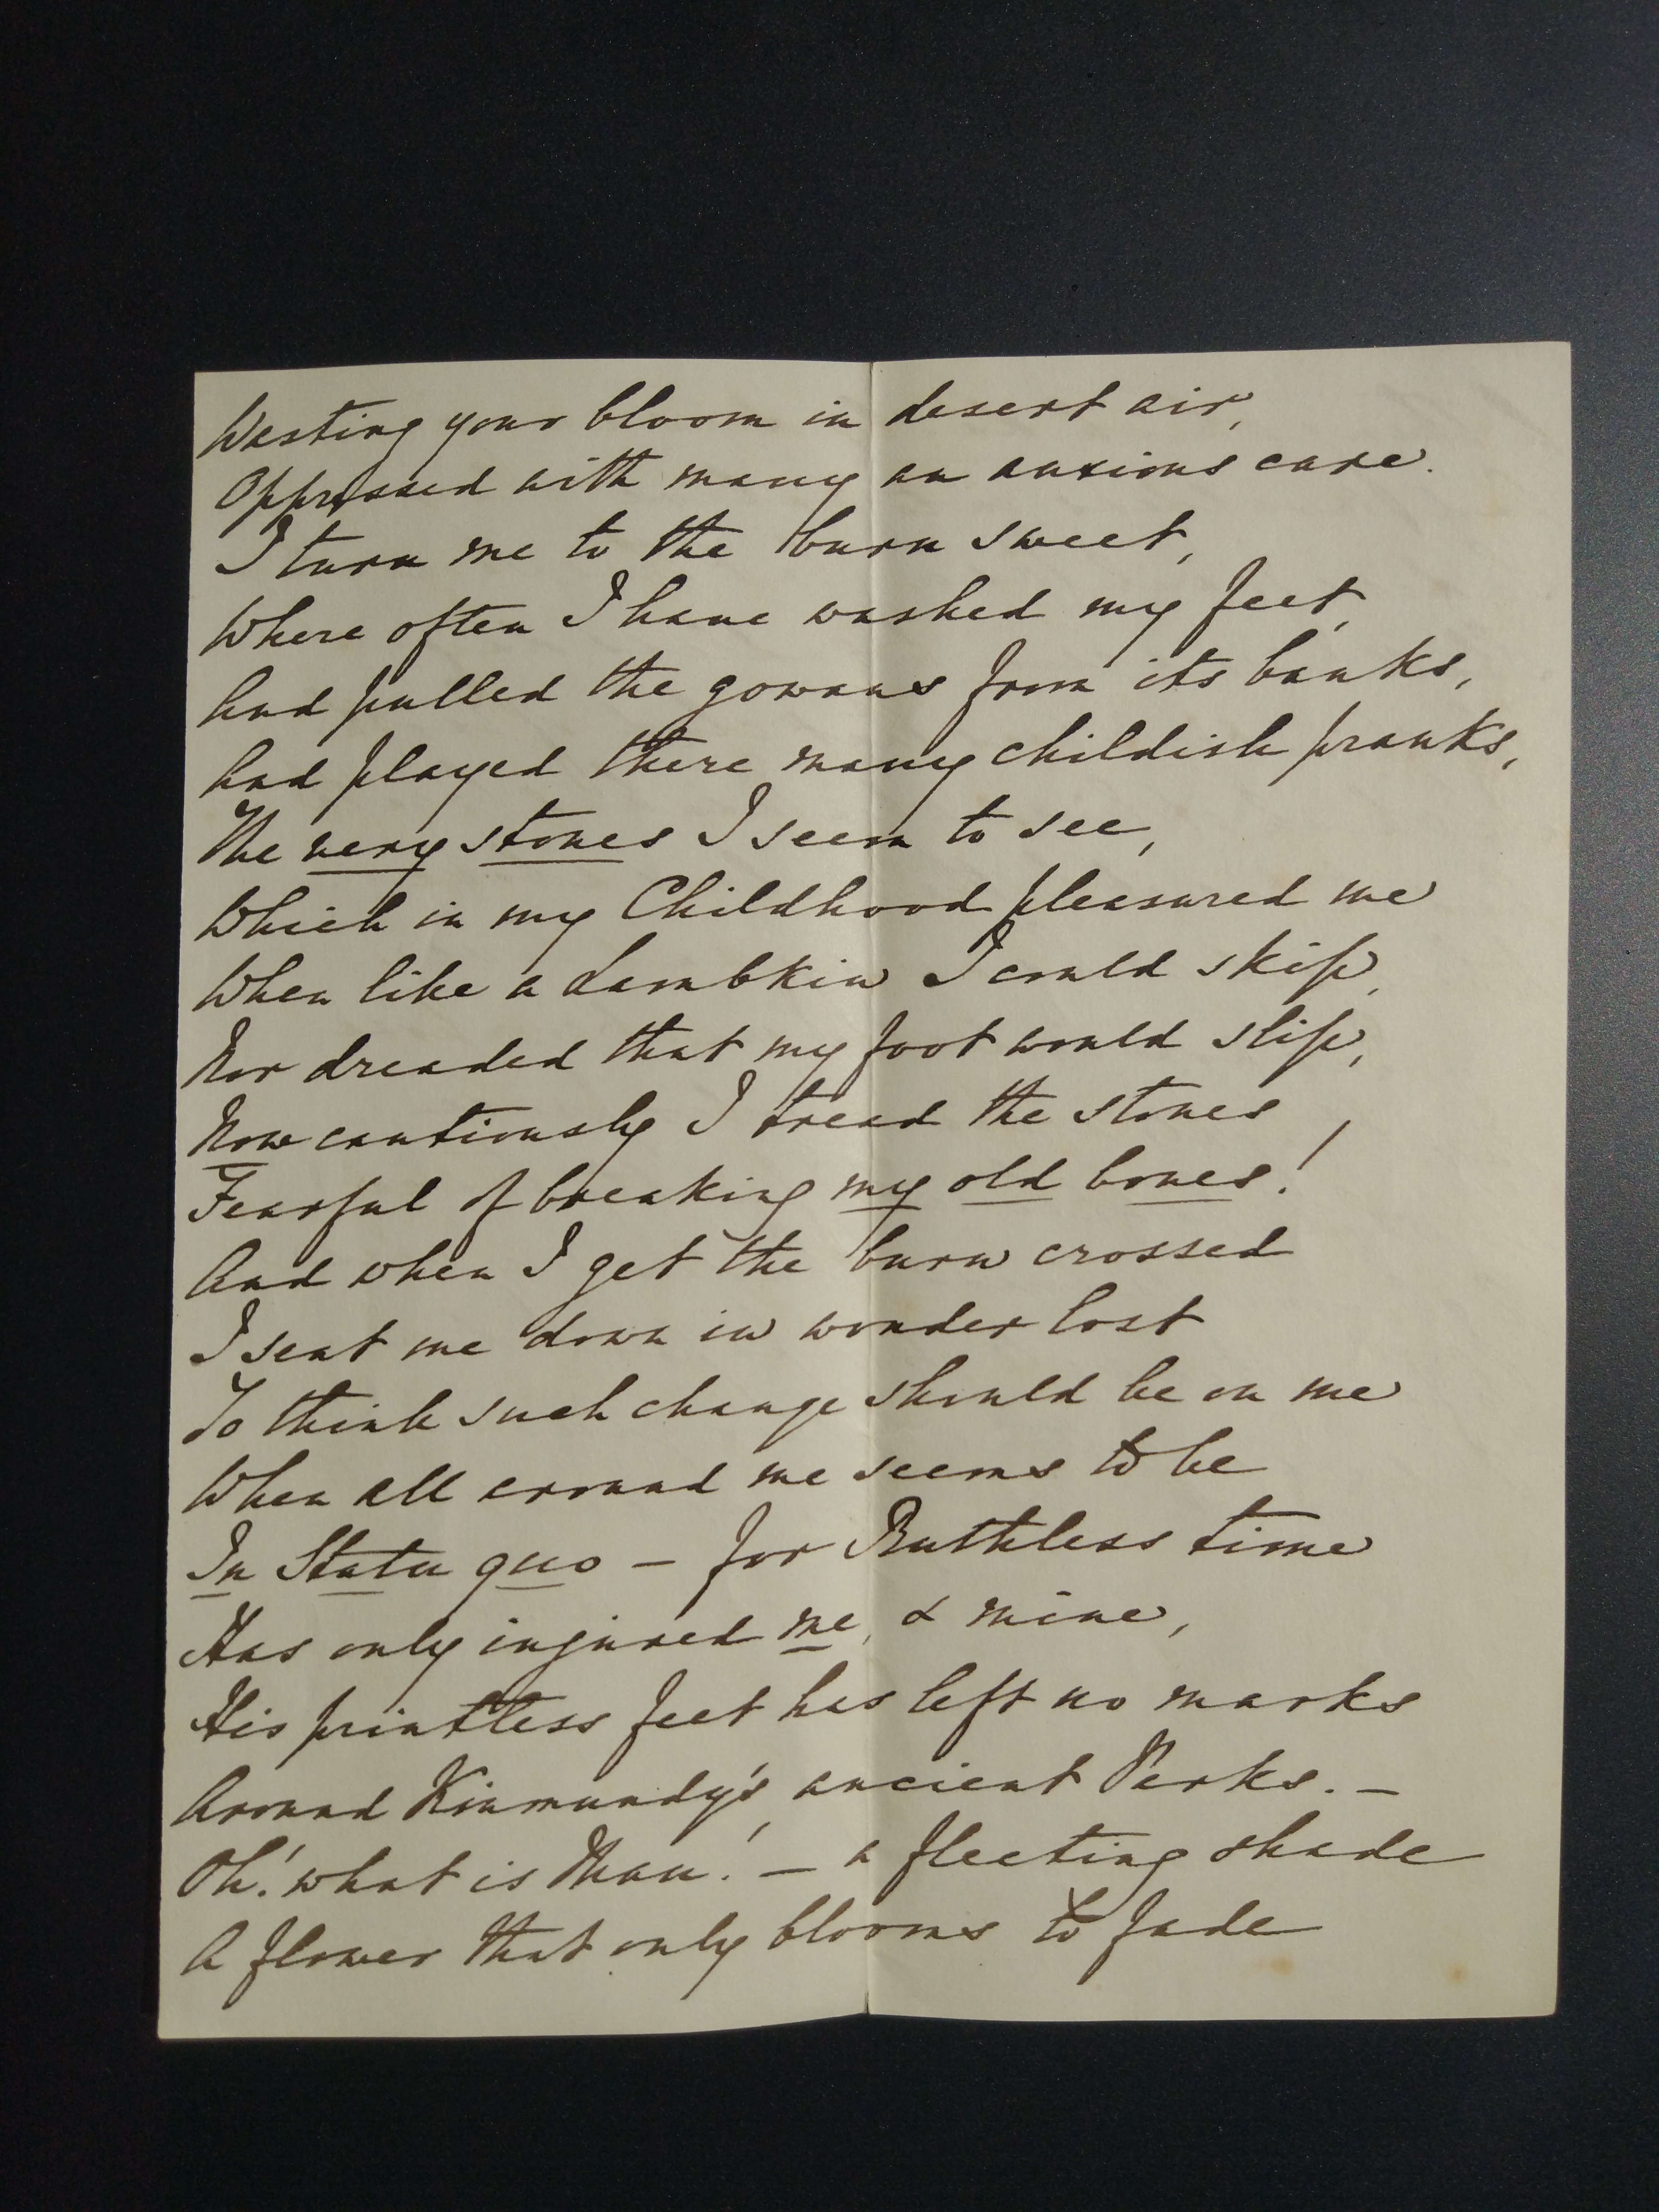 Wasting your bloom in desert air,
Oppressed with many an anxious care.
I turn me to the burn sweet,
Where often I have washed my feet,
And pulled the gowans from its banks,
And played there many childish pranks,
The very stones I seem to see,
Which in my Childhood pleasured me
When like a Lambkin I could skip,
Nor dreaded that my foot would slip,
Now cautiously I tread the stones,
Fearful of breaking my old bones!
And when I get the burn crossed
I seat me down in wonder lost
To think such change should be on me
When all around me seems to be
In Statu quo – for Ruthless time
Has only injured me, & mine,
His printless feet has left no marks
Around Kinmundy's, ancient Parks. –
Oh! what is Man! – a fleeting shade
A flower that only blooms to fade